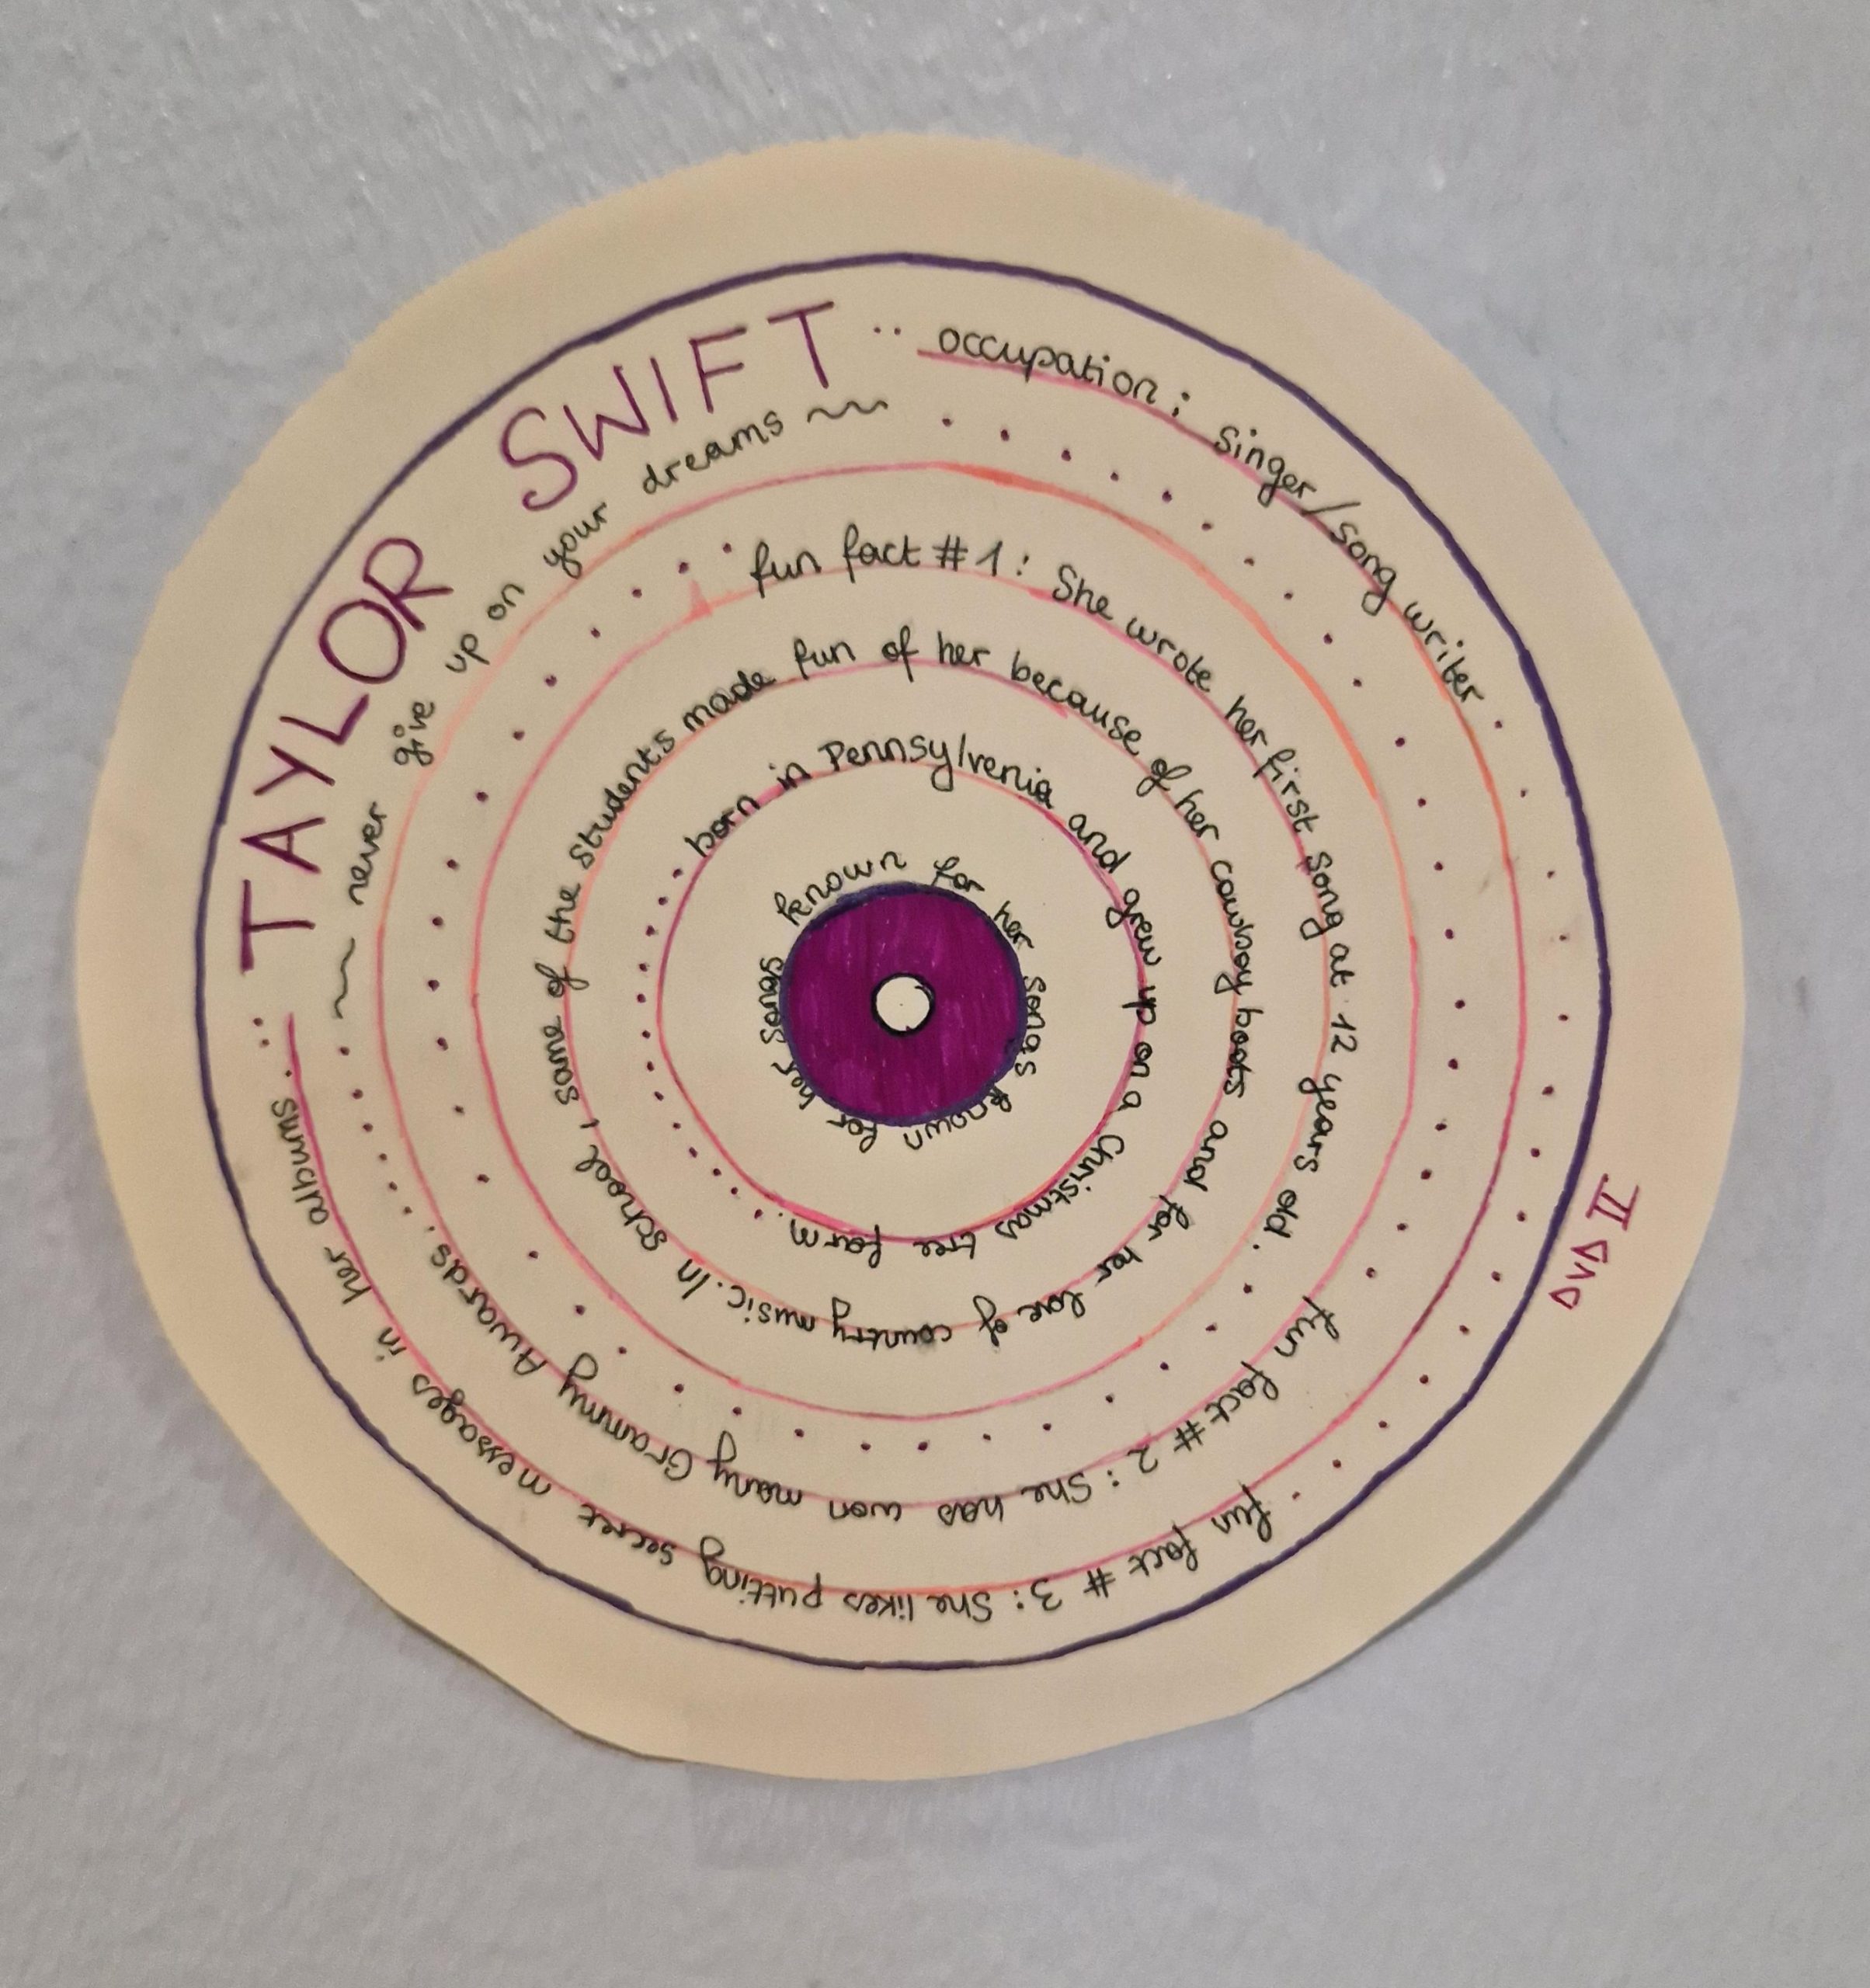 TAYLOR SWIFT
occupation: singer/song writer
fun fact #3: She likes putting secret messages in her albums
~ never give up on your dreams ~
fun fact #2: She has won many Grammy Awards.
fun fact #1: She wrote her first song at 12 years old.
In school, some of the students made fun of her because of her cowboy boots and for her love of country music.
born in Pennsylvenia and grew up on a Christmas tree farm.
known for her songs known for her songs